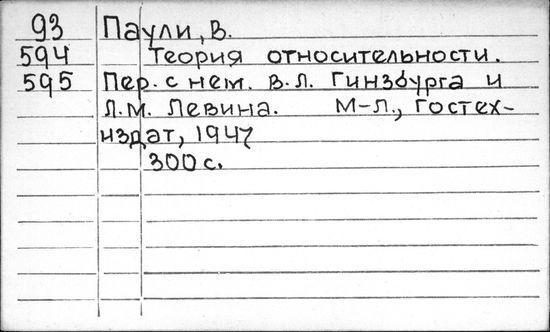 93 Паули, В.
594 Теория относительности.
595 Пер. с нем. В.Л. Гинзбурга и
Л.М. Левина. М-Л., Гостех-
издат, 1947
300 с.